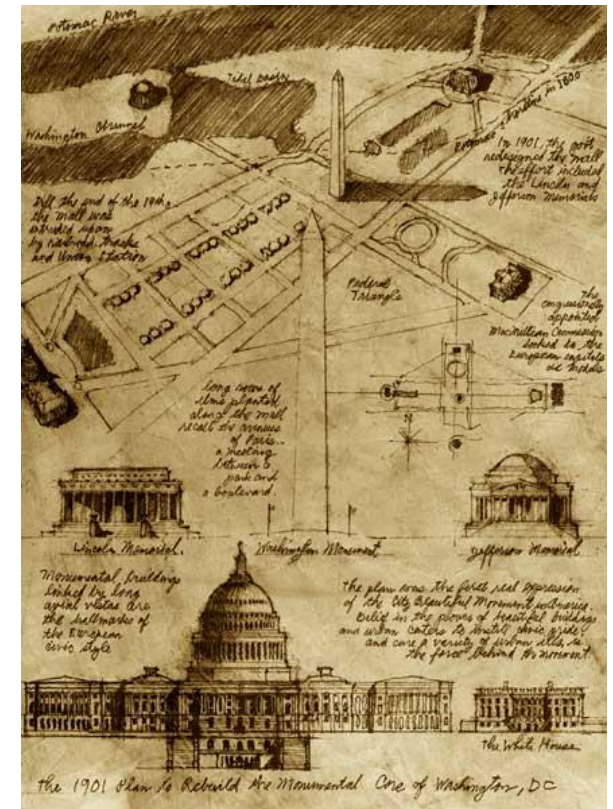 Potomac River
Tidal Basin
Washington Channel
Potomac Shoreline in 1800
In 1901, the gov't
redesigned the mall
the effort included
the Lincoln and
Jefferson Memorials
Till the end of the 19th c.
the mall was
intruded upon
by railroad tracks
and Union Station
Federal
Triangle
the
congressionally
appointed
MacMillian Commission
looked to the
European capitals
as models
long rows of
elms planted
along the mall
recall the avenues
of Paris..
a meeting
between a
park and
a boulevard.
Lincoln Memorial.
Washington Monument
Jefferson Memorial
Monumental buildings
linked by long
axial vistas are
the hallmarks of
the European
civic style
The plan was the first real expression
of the City Beautiful Movement in America.
Belief in the power of beautiful buildings
and urban centers to instill civic pride
and cure a variety of urban ills, is
the force behind the movement.
The White House
The 1901 Plan to Rebuild the Monumental Core of Washington, DC